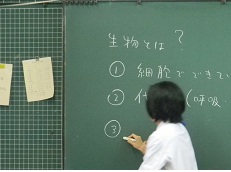 生物とは?
① 細胞でできてい
② 代 (呼吸
③